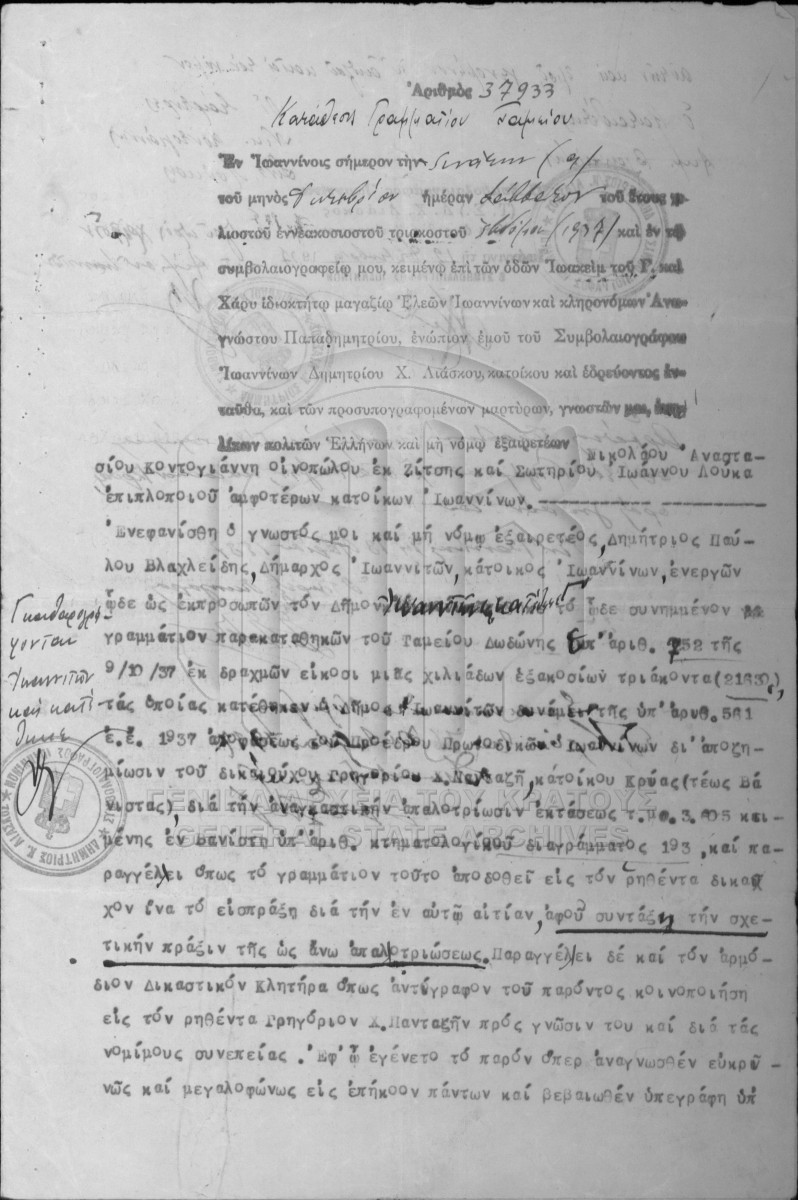 Ἀριθμὸς 37933
Κατάθεσις Γραμματίου Ταμείου
Ἐν Ἰωαννίνοις σήμερον τὴν
τοῦ μηνὸς Ὀκτωβρίου ἡμέραν Σάββατον τοῦ ἔτους χι-
λιοστοῦ ἐννεακοσιοστοῦ τριακοστοῦ ἑβδόμου (1937) καὶ ἐν τῷ
συμβολαιογραφείῳ μου, κειμένῳ ἐπὶ τῶν ὁδῶν Ἰωακεὶμ τοῦ Γ. καὶ
Χάρυ ἰδιοκτήτῳ μαγαζίῳ Ἐλεῶν Ἰωαννίνων καὶ κληρονόμων Ἀνα-
γνώστου Παπαδημητρίου, ἐνώπιον ἐμοῦ τοῦ Συμβολαιογράφου
Ἰωαννίνων Δημητρίου Χ. Λιάσκου, κατοίκου καὶ ἑδρεύοντος ἐν-
ταῦθα, καὶ τῶν προσυπογραφομένων μαρτύρων, γνωστῶν μου, ἐνη-
λίκων πολιτῶν Ἑλλήνων καὶ μὴ νόμῳ ἐξαιρετέων Νικολάου Ἀναστα-
σίου Κοντογιάννη οἰνοπώλου ἐκ Ζίτσης καί Σωτηρίου Ἰωάννου Λούκα
ἐπιπλοποιοῦ ἀμφοτέρων κατοίκων Ἰωαννίνων.
Ἐνεφανίσθη ὁ γνωστός μοι καί μή νόμῳ ἐξαιρετέος, Δημήτριος Παύ-
λου Βλαχλείδης, Δήμαρχος Ἰωαννιτῶν, κάτοικος Ἰωαννίνων, ἐνεργῶν
ᾧδε ὡς ἐκπροσωπῶν τόν Δῆμον Ἰωαννιτῶν τό ᾧδε συνημμένον
γραμμάτιον παρακαταθηκῶν τοῦ Ταμείου Δωδώνης ὑπ' ἀριθ. 752 τῆς
9/10/37 ἐκ δραχμῶν εἴκοσι μιᾶς χιλιάδων ἑξακοσίων τριάκοντα (21630),
τάς ὁποίας κατέθηκεν ὁ Δῆμος Ἰωαννιτῶν δυνάμει τῆς ὑπ' ἀριθ. 561
ἐ.ἔ. 1937 ἀποφάσεως τοῦ Προέδρου Πρωτοδικῶν Ἰωαννίνων δι' ἀποζη-
μίωσιν τοῦ δικαιούχου Γρηγορίου Χ. Πανταζῆ, κατοίκου Κρύας (τέως Βά
νιστας), διά τήν ἀναγκαστικήν ἀπαλοτρίωσιν ἐκτάσεως τ.μ. 3.705 κει-
μένης ἐν Βανίστῃ ὑπ' ἀριθ. κτηματολογικοῦ διαγράμματος 193, καί πα-
ραγγέλει ὅπως τό γραμμάτιον τοῦτο ἀποδοθεῖ εἰς τόν ρηθέντα δικαι
χον ἵνα τό εἰσπράξῃ διά τήν ἐν αὐτῷ αἰτίαν, ἀφοῦ συντάξῃ τήν σχε-
τικήν πρᾶξιν τῆς ὡς ἄνω ἀπαλοτριώσεως. Παραγγέλει δέ καί τόν ἁρμό-
διον Δικαστικόν Κλητῆρα ὅπως ἀντίγραφον τοῦ παρόντος κοινοποιήσῃ
εἰς τόν ρηθέντα Γρηγόριον Χ. Πανταζῆν πρός γνῶσιν του καί διά τάς
νομίμους συνεπείας. Ἐφ' ᾧ ἐγένετο τό παρόν ὅπερ ἀναγνωσθέν εὐκρι-
νῶς καί μεγαλοφώνως εἰς ἐπήκοον πάντων καί βεβαιωθέν ὑπεγράφη ὑπ'
Ἰωαννιτῶν
ΓΕΝΙΚΑ ΑΡΧΕΙΑ ΤΟΥ ΚΡΑΤΟΥΣ
GENERAL STATE ARCHIVES